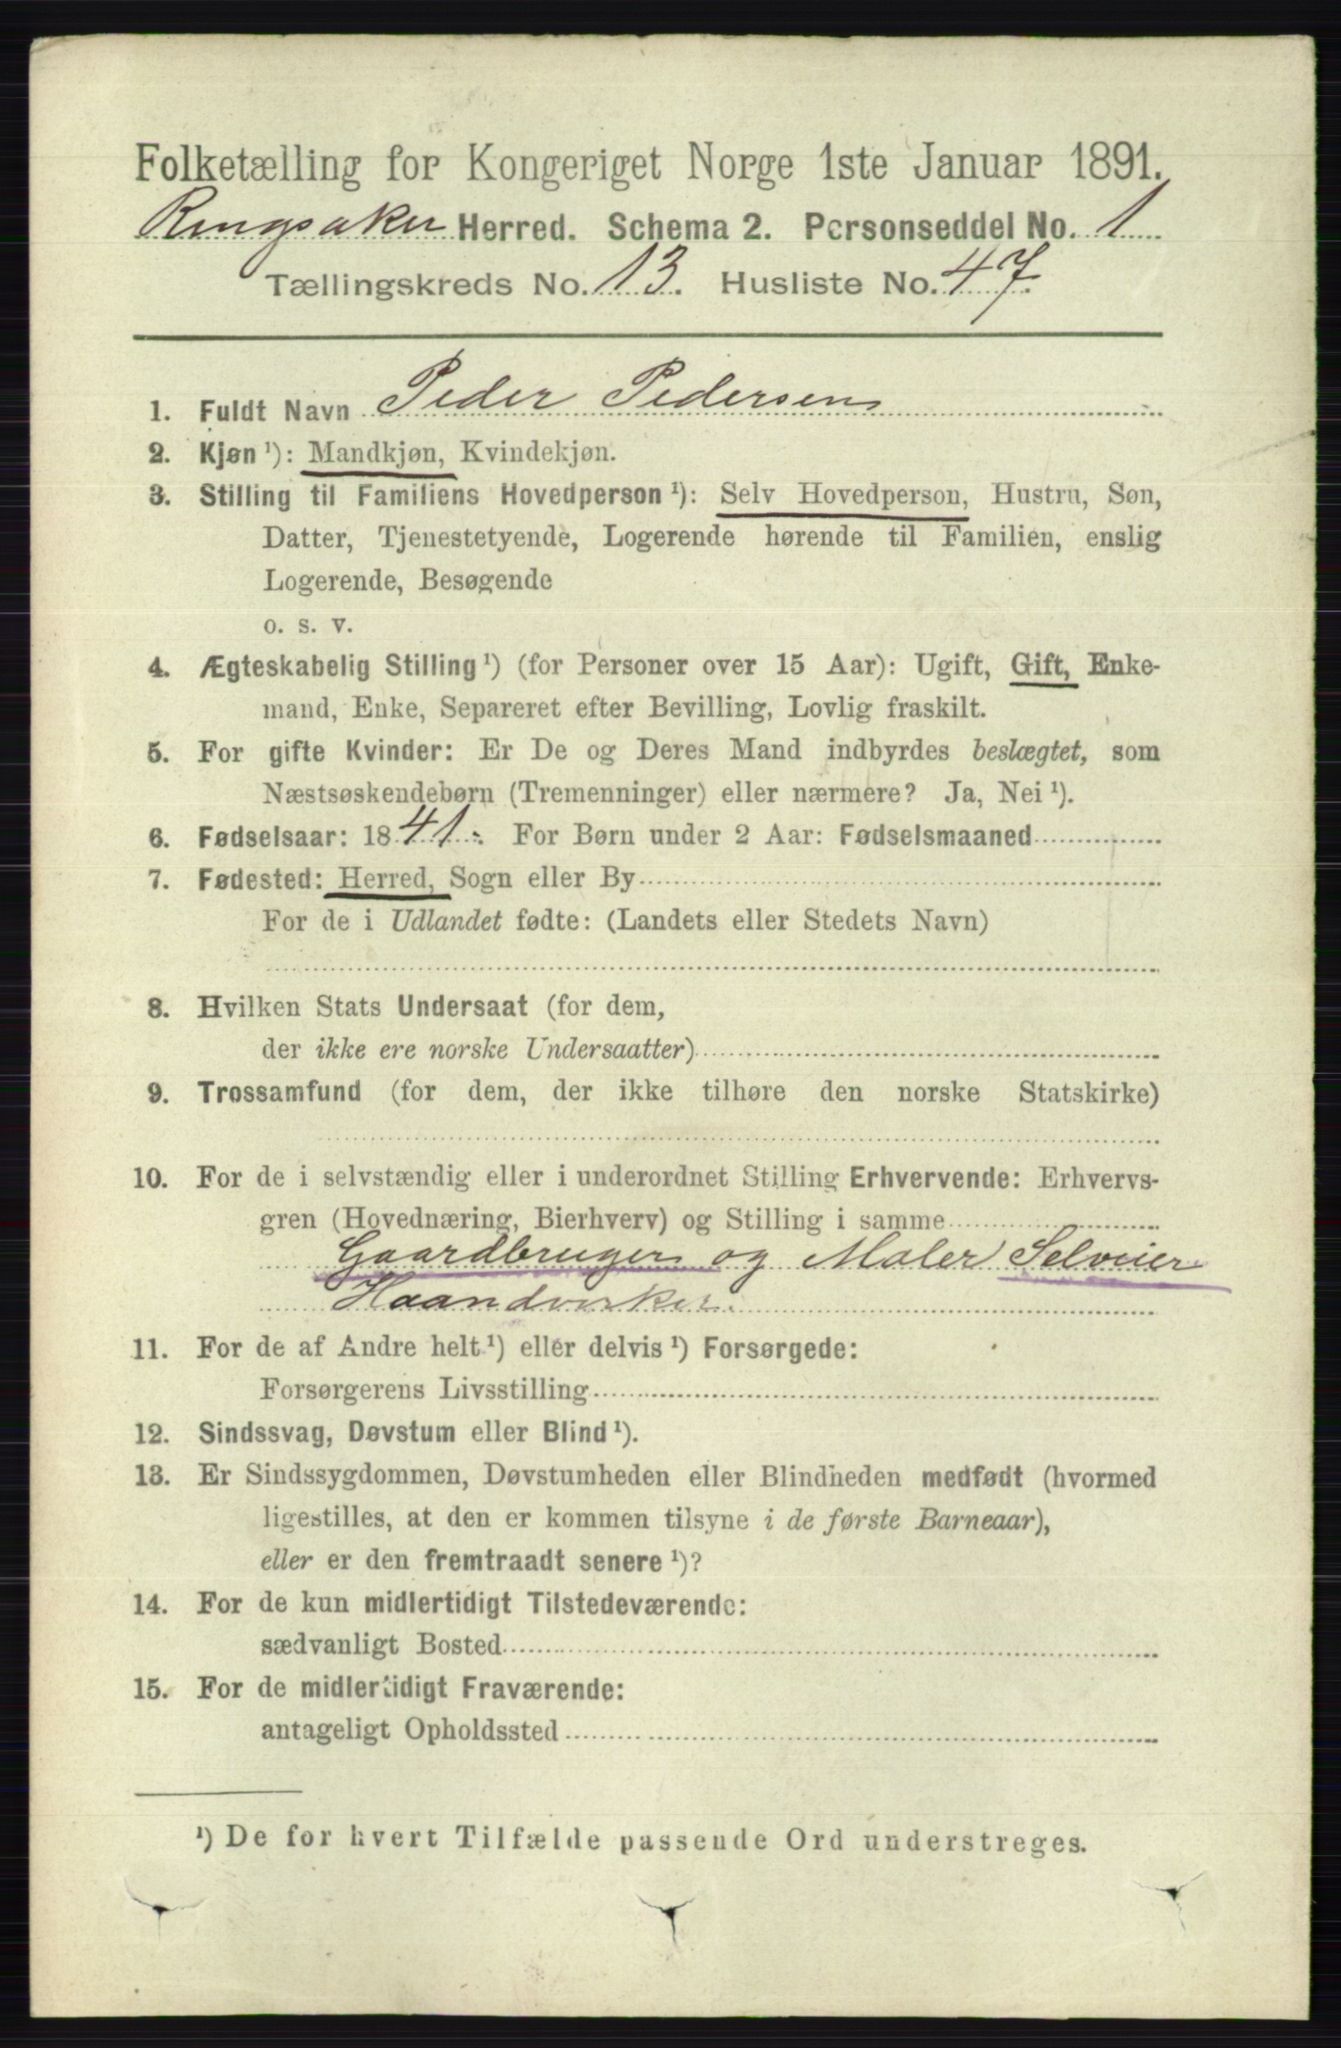 Folketælling for Kongeriget Norge 1ste Januar 1891.
Ringsaker Herred. Schema 2. Personseddel No. 1
Tællingskreds No. 13. Husliste No. 47.
1. Fuldt Navn Peder Pedersen
2. Kjøn ¹): Mandkjøn, Kvindekjøn.
3. Stilling til Familiens Hovedperson ¹): Selv Hovedperson, Hustru, Søn,
Datter, Tjenestetyende, Logerende hørende til Familien, enslig
Logerende, Besøgende
o. s. v.
4. Ægteskabelig Stilling ¹) (for Personer over 15 Aar): Ugift, Gift, Enke-
mand, Enke, Separeret efter Bevilling, Lovlig fraskilt.
5. For gifte Kvinder: Er De og Deres Mand indbyrdes beslægtet, som
Næstsøskendebørn (Tremenninger) eller nærmere? Ja, Nei ¹).
6. Fødselsaar: 1841. For Børn under 2 Aar: Fødselsmaaned
7. Fødested: Herred, Sogn eller By
For de i Udlandet fødte: (Landets eller Stedets Navn)
8. Hvilken Stats Undersaat (for dem,
der ikke ere norske Undersaatter)
9. Trossamfund (for dem, der ikke tilhøre den norske Statskirke)
10. For de i selvstændig eller i underordnet Stilling Erhvervende: Erhvervs-
gren (Hovednæring, Bierhverv) og Stilling i samme
Gaardbruger og Maler Selveier
Haandverker.
11. For de af Andre helt ¹) eller delvis ¹) Forsørgede:
Forsørgerens Livsstilling
12. Sindssvag, Døvstum eller Blind ¹).
13. Er Sindssygdommen, Døvstumheden eller Blindheden medfødt (hvormed
ligestilles, at den er kommen tilsyne i de første Barneaar),
eller er den fremtraadt senere ¹)?
14. For de kun midlertidigt Tilstedeværende:
sædvanligt Bosted
15. For de midlertidigt Fraværende:
antageligt Opholdssted
¹) De for hvert Tilfælde passende Ord understreges.